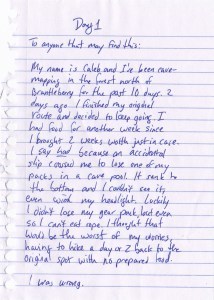 Day 1
To anyone that may find this:
My name is Caleb and I've been cave-
mapping in the forest north of
Brattleberry for the past 10 days. 2
days ago I finished my original
route and decided to keep going. I
had food for another week since
I brought 2 weeks worth just in case.
I say had because an accidental
slip caused me to lose one of my
packs in a cave pool. It sank to
the bottom and I couldn't see it,
even with my headlight. Luckily
I didn't lose my gear pack, but even
so I can't eat rope. I thought that
would be the worst of my worries,
having to hike a day or 2 back to the
original spot with no prepared food.
I was wrong.